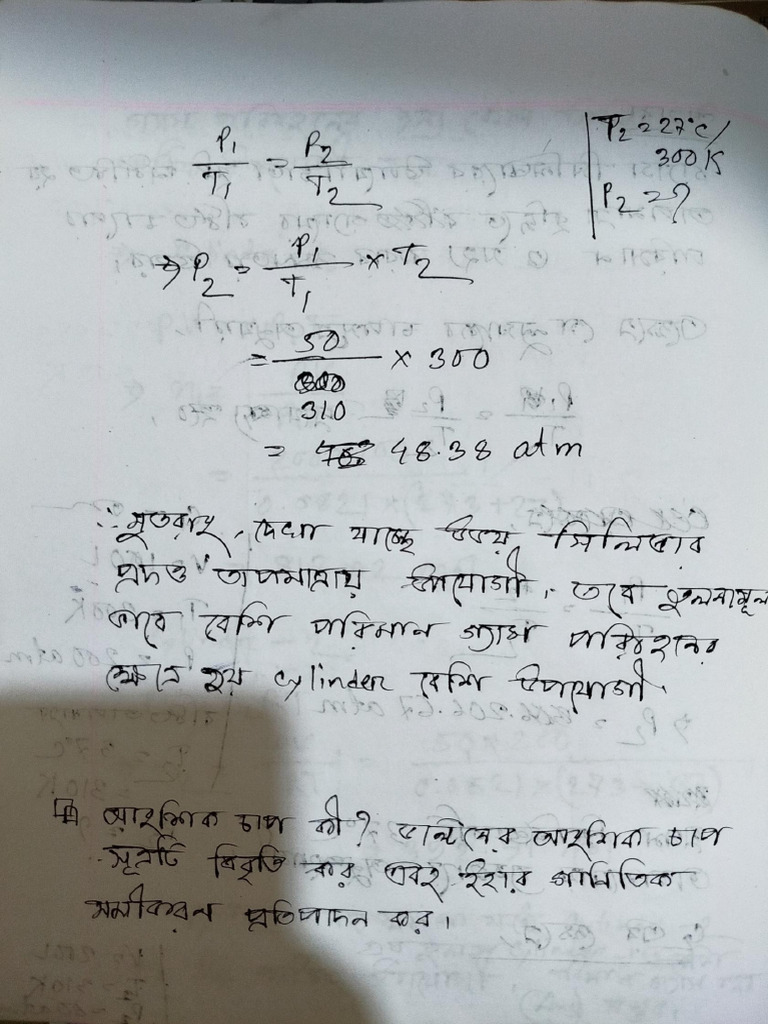 P₁/T₁ = P₂/T₂
T₂ = 27°C/
300 K
P₂ = ?
⇒ P₂ = P₁/T₁ × T₂
= 50/310 × 300
= 48.38 atm
∴ সুতরাং, দেখা যাচ্ছে উভয় সিলিন্ডার
প্রদত্ত তাপমাত্রায় উপযোগী, তবে তুলনামূল
কভাবে বেশি পরিমান গ্যাস পরিবহনের
ক্ষেত্রে ২য় cylinder বেশি উপযোগী.
আংশিক চাপ কী? ডাল্টনের আংশিক চাপ
সূত্রটি বিবৃতি কর এবং ইহার গানিতিক
সমীকরণ প্রতিপাদন কর।